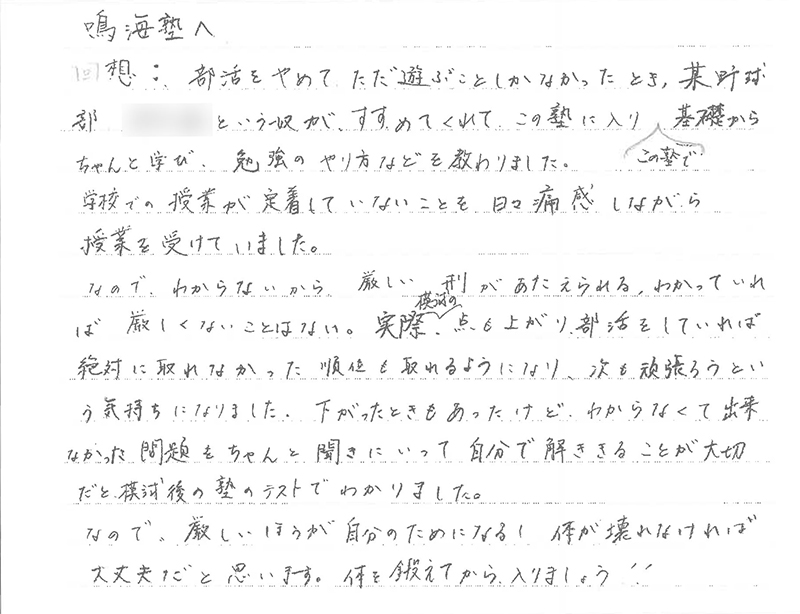 鳴海塾へ
回想：部活をやめてただ遊ぶことしかなかったとき，某野球
部 という奴が、すすめてくれて、この塾に入り この塾で 基礎から
ちゃんと学び、勉強のやり方などを教わりました。
学校での授業が定着していないことを日々痛感しながら
授業を受けていました。
なので、わからないから、厳しい刑があたえられる，わかっていれ
ば厳しくないことはない。実際、模試の点も上がり、部活をしていれば
絶対に取れなかった順位も取れるようになり、次も頑張ろうとい
う気持ちになりました。下がったときもあったけど、わからなくて出来
なかった問題をちゃんと聞きにいって自分で解ききることが大切
だと模試後の塾のテストでわかりました。
なので、厳しいほうが自分のためになるし 体が壊れなければ
大丈夫だと思います。体を鍛えてから、入りましょう!!